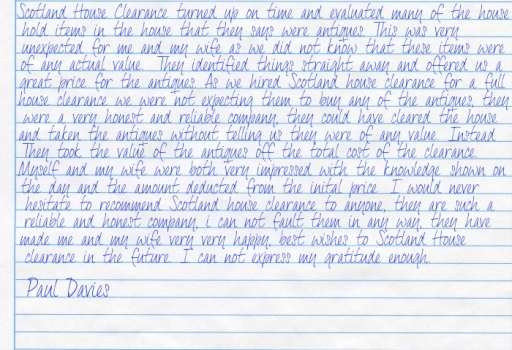 Scotland House Clearance turned up on time and evaluated many of the house
hold items in the house that they says were antiques. This was very
unexpected for me and my wife as we did not know that these items were
of any actual value. They identified things straight away and offered us a
great price for the antiques. As we hired Scotland house clearance for a full
house clearance we were not expecting them to buy any of the antiques, they
were a very honest and reliable company, they could have cleared the house
and taken the antiques without telling us they were of any value. Instead
They took the value of the antiques off the total cost of the clearance.
Myself and my wife were both very impressed with the knowledge shown on
the day and the amount deducted from the inital price. I would never
hesitate to recommend Scotland house clearance to anyone, they are such a
reliable and honest company, i can not fault them in any way, they have
made me and my wife very very happy, best wishes to Scotland House
clearance in the future. I can not express my gratitude enough.
Paul Davies